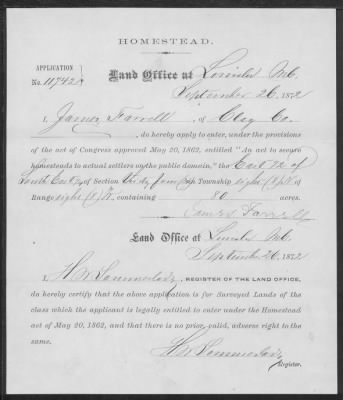 HOMESTEAD.
APPLICATION
No. 11742
Land Office at Lincoln Neb.
September 26, 1872
I, James Farrell, of Clay Co.
do hereby apply to enter, under the provisions
of the act of Congress approved May 20, 1862, entitled "An act to secure
homesteads to actual settlers on the public domain," the East ½ of
South East ¼ of Section thirty four in Township eight (8) N
Range eight (8) W. containing 80 acres.
James Farrell
Land Office at Lincoln Neb.
September 26, 1872
I, H W Sommerlad, REGISTER OF THE LAND OFFICE,
do hereby certify that the above application is for Surveyed Lands of
the class which the applicant is legally entitled to enter under the Homestead
act of May 20, 1862, and that there is no prior, valid, adverse right to the
same.
H W Sommerlad
Register.